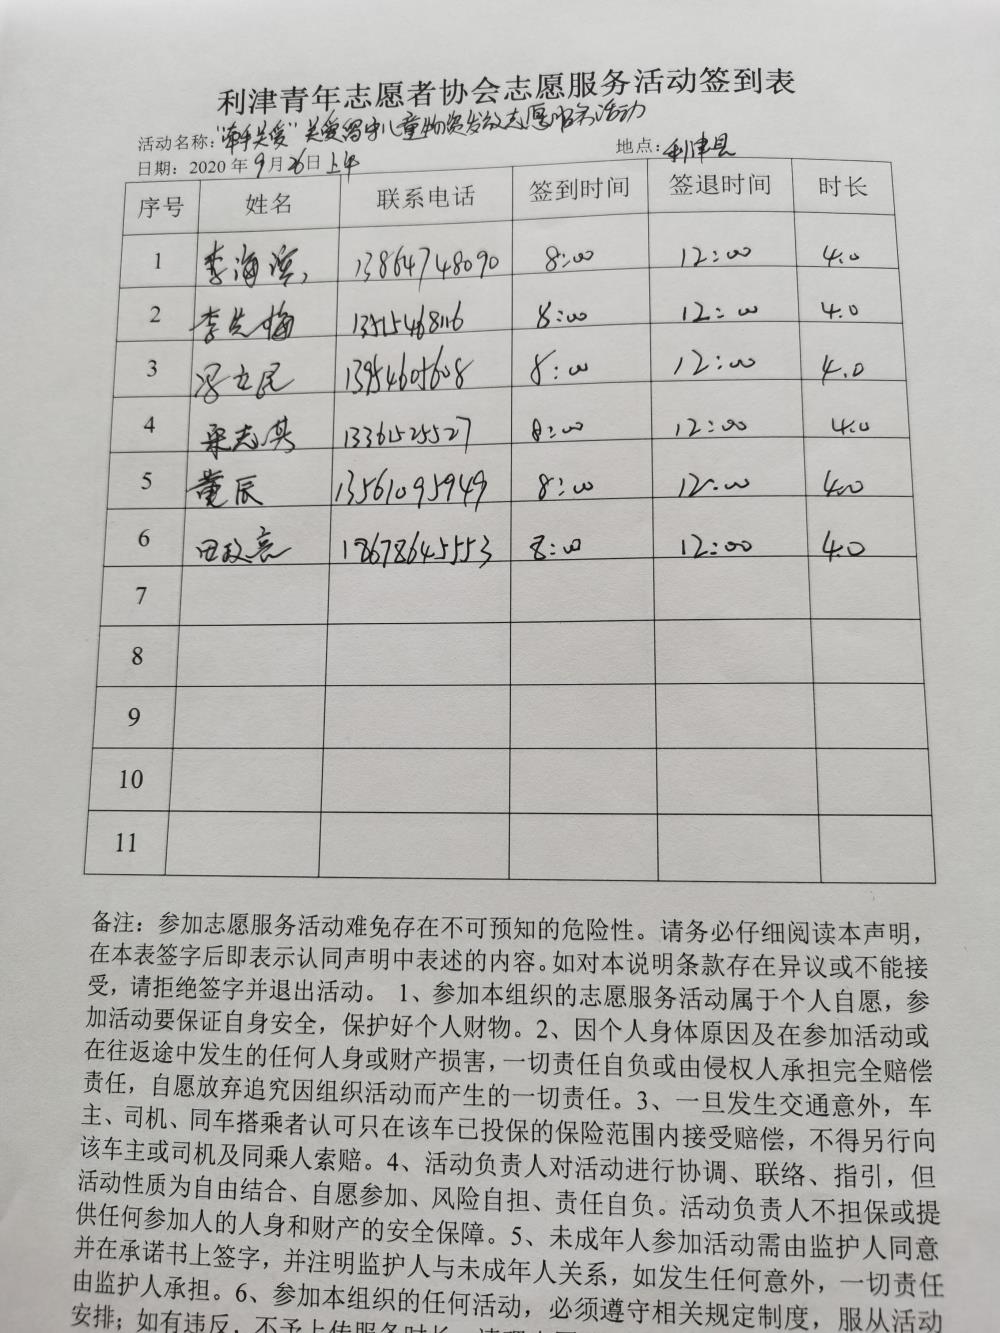 利津青年志愿者协会志愿服务活动签到表
活动名称：“牵手关爱”关爱留守儿童物资发放志愿服务活动
地点：利津县
日期：2020 年 9 月 26 日 上午
序号 姓名 联系电话 签到时间 签退时间 时长
1 李海滨 13864748090 8:00 12:00 4.0
2 李先梅 8:00 12:00 4.0
3 冯立民 13954605608 8:00 12:00 4.0
4 梁志其 13361525527 8:00 12:00 4.0
5 董辰 13561095949 8:00 12:00 4.0
6 田政亮 18678645553 8:00 12:00 4.0
7
8
9
10
11
备注：参加志愿服务活动难免存在不可预知的危险性。请务必仔细阅读本声明，
在本表签字后即表示认同声明中表述的内容。如对本说明条款存在异议或不能接
受，请拒绝签字并退出活动。 1、参加本组织的志愿服务活动属于个人自愿，参
加活动要保证自身安全，保护好个人财物。2、因个人身体原因及在参加活动或
在往返途中发生的任何人身或财产损害，一切责任自负或由侵权人承担完全赔偿
责任，自愿放弃追究因组织活动而产生的一切责任。3、一旦发生交通意外，车
主、司机、同车搭乘者认可只在该车已投保的保险范围内接受赔偿，不得另行向
该车主或司机及同乘人索赔。4、活动负责人对活动进行协调、联络、指引，但
活动性质为自由结合、自愿参加、风险自担、责任自负。活动负责人不担保或提
供任何参加人的人身和财产的安全保障。5、未成年人参加活动需由监护人同意
并在承诺书上签字，并注明监护人与未成年人关系，如发生任何意外，一切责任
由监护人承担。6、参加本组织的任何活动，必须遵守相关规定制度，服从活动
安排；如有违反，不予上传服务时长，请理